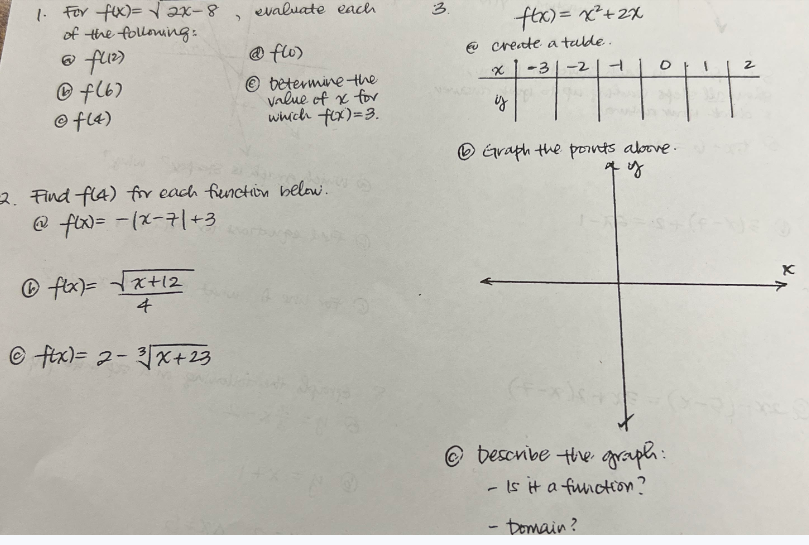 1. For f(x) = √2x-8 , evaluate each
of the following:
ⓐ f(12)
ⓑ f(6)
ⓒ f(4)
ⓓ f(0)
ⓔ Determine the
value of x for
which f(x)=3.
2. Find f(4) for each function below.
ⓐ f(x)= -|x-7|+3
ⓑ f(x)= √x+12
4
ⓒ f(x)= 2- ³√x+23
3. f(x) = x²+2x
ⓐ create a table.
x | -3 | -2 | -1 | 0 | 1 | 2
y
ⓑ Graph the points above.
y
x
ⓒ Describe the graph:
- Is it a function?
- Domain?